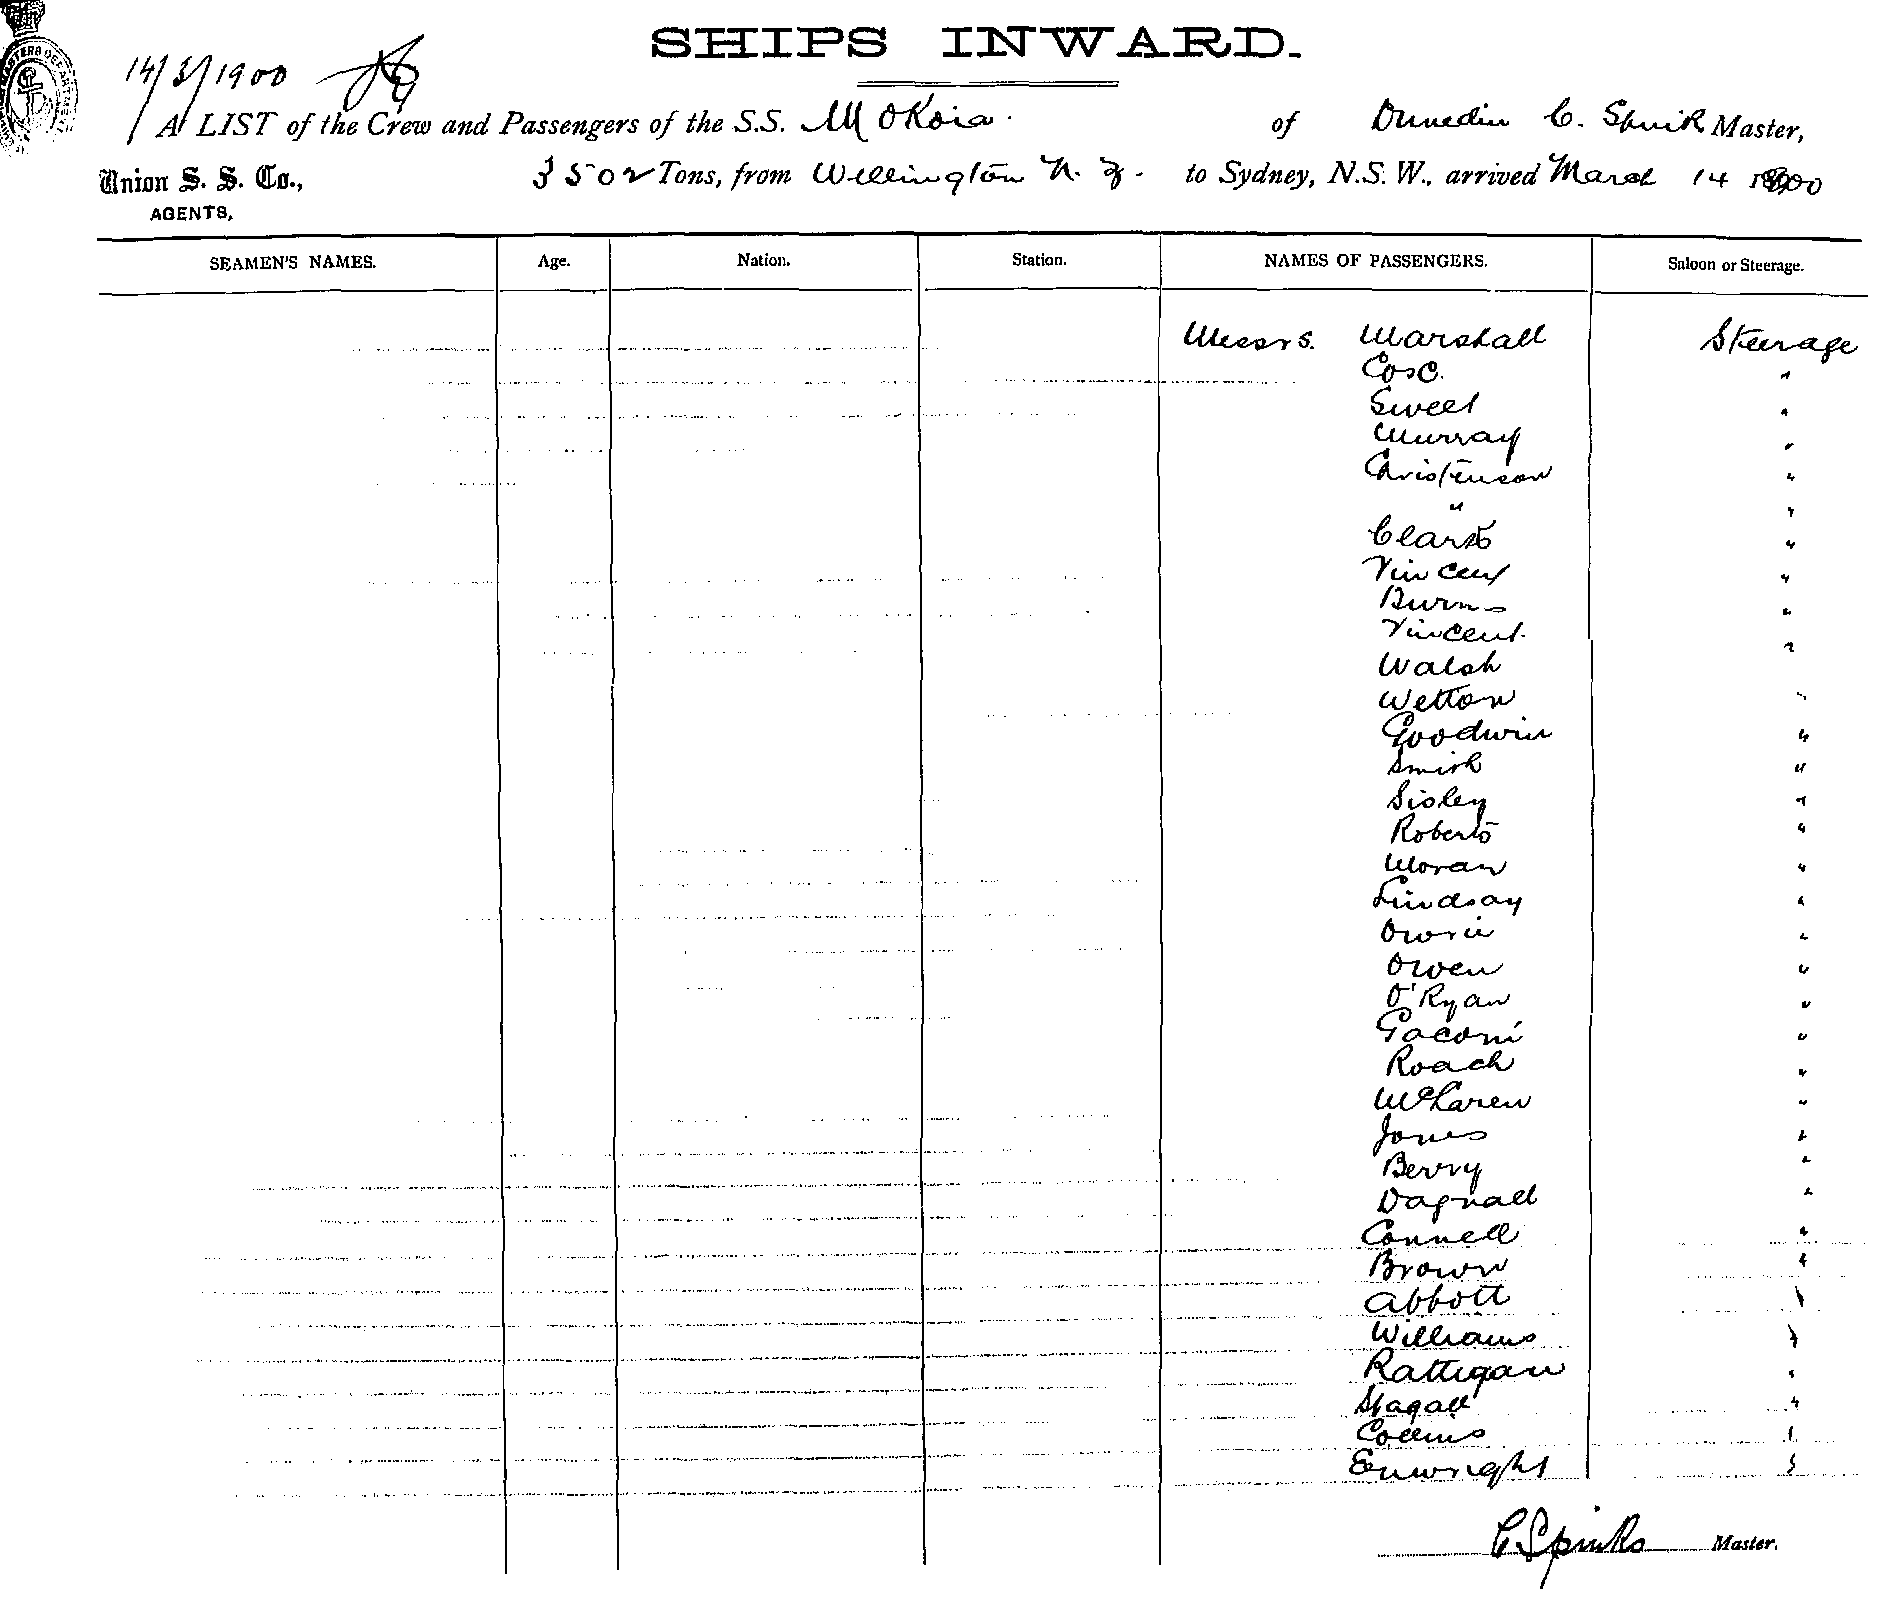 SHIPS INWARD.
14/3/1900
A LIST of the Crew and Passengers of the S.S. Mokoia of Dunedin C. Spink Master,
Union S. S. Co., 3502 Tons, from Wellington N. Z. to Sydney, N.S.W., arrived March 14 1900
AGENTS,
SEAMEN'S NAMES. Age. Nation. Station. NAMES OF PASSENGERS. Saloon or Steerage.
Messrs. Marshall Steerage
"
Sweet "
Murray "
Christenson "
" "
Clark "
Vincent "
Burns "
Vincent "
Walsh
Wetton "
Goodwin "
Smith "
Sisley "
Roberts "
Moran "
Lindsay "
Owrie "
Owen "
O'Ryan "
Gaconi "
Roach "
McLaren "
Jones "
Berry "
Dagnall "
Connell "
Brown "
Abbott "
Williams "
Rattigan "
Stagall "
Collins "
Enwright "
C Spinks Master.